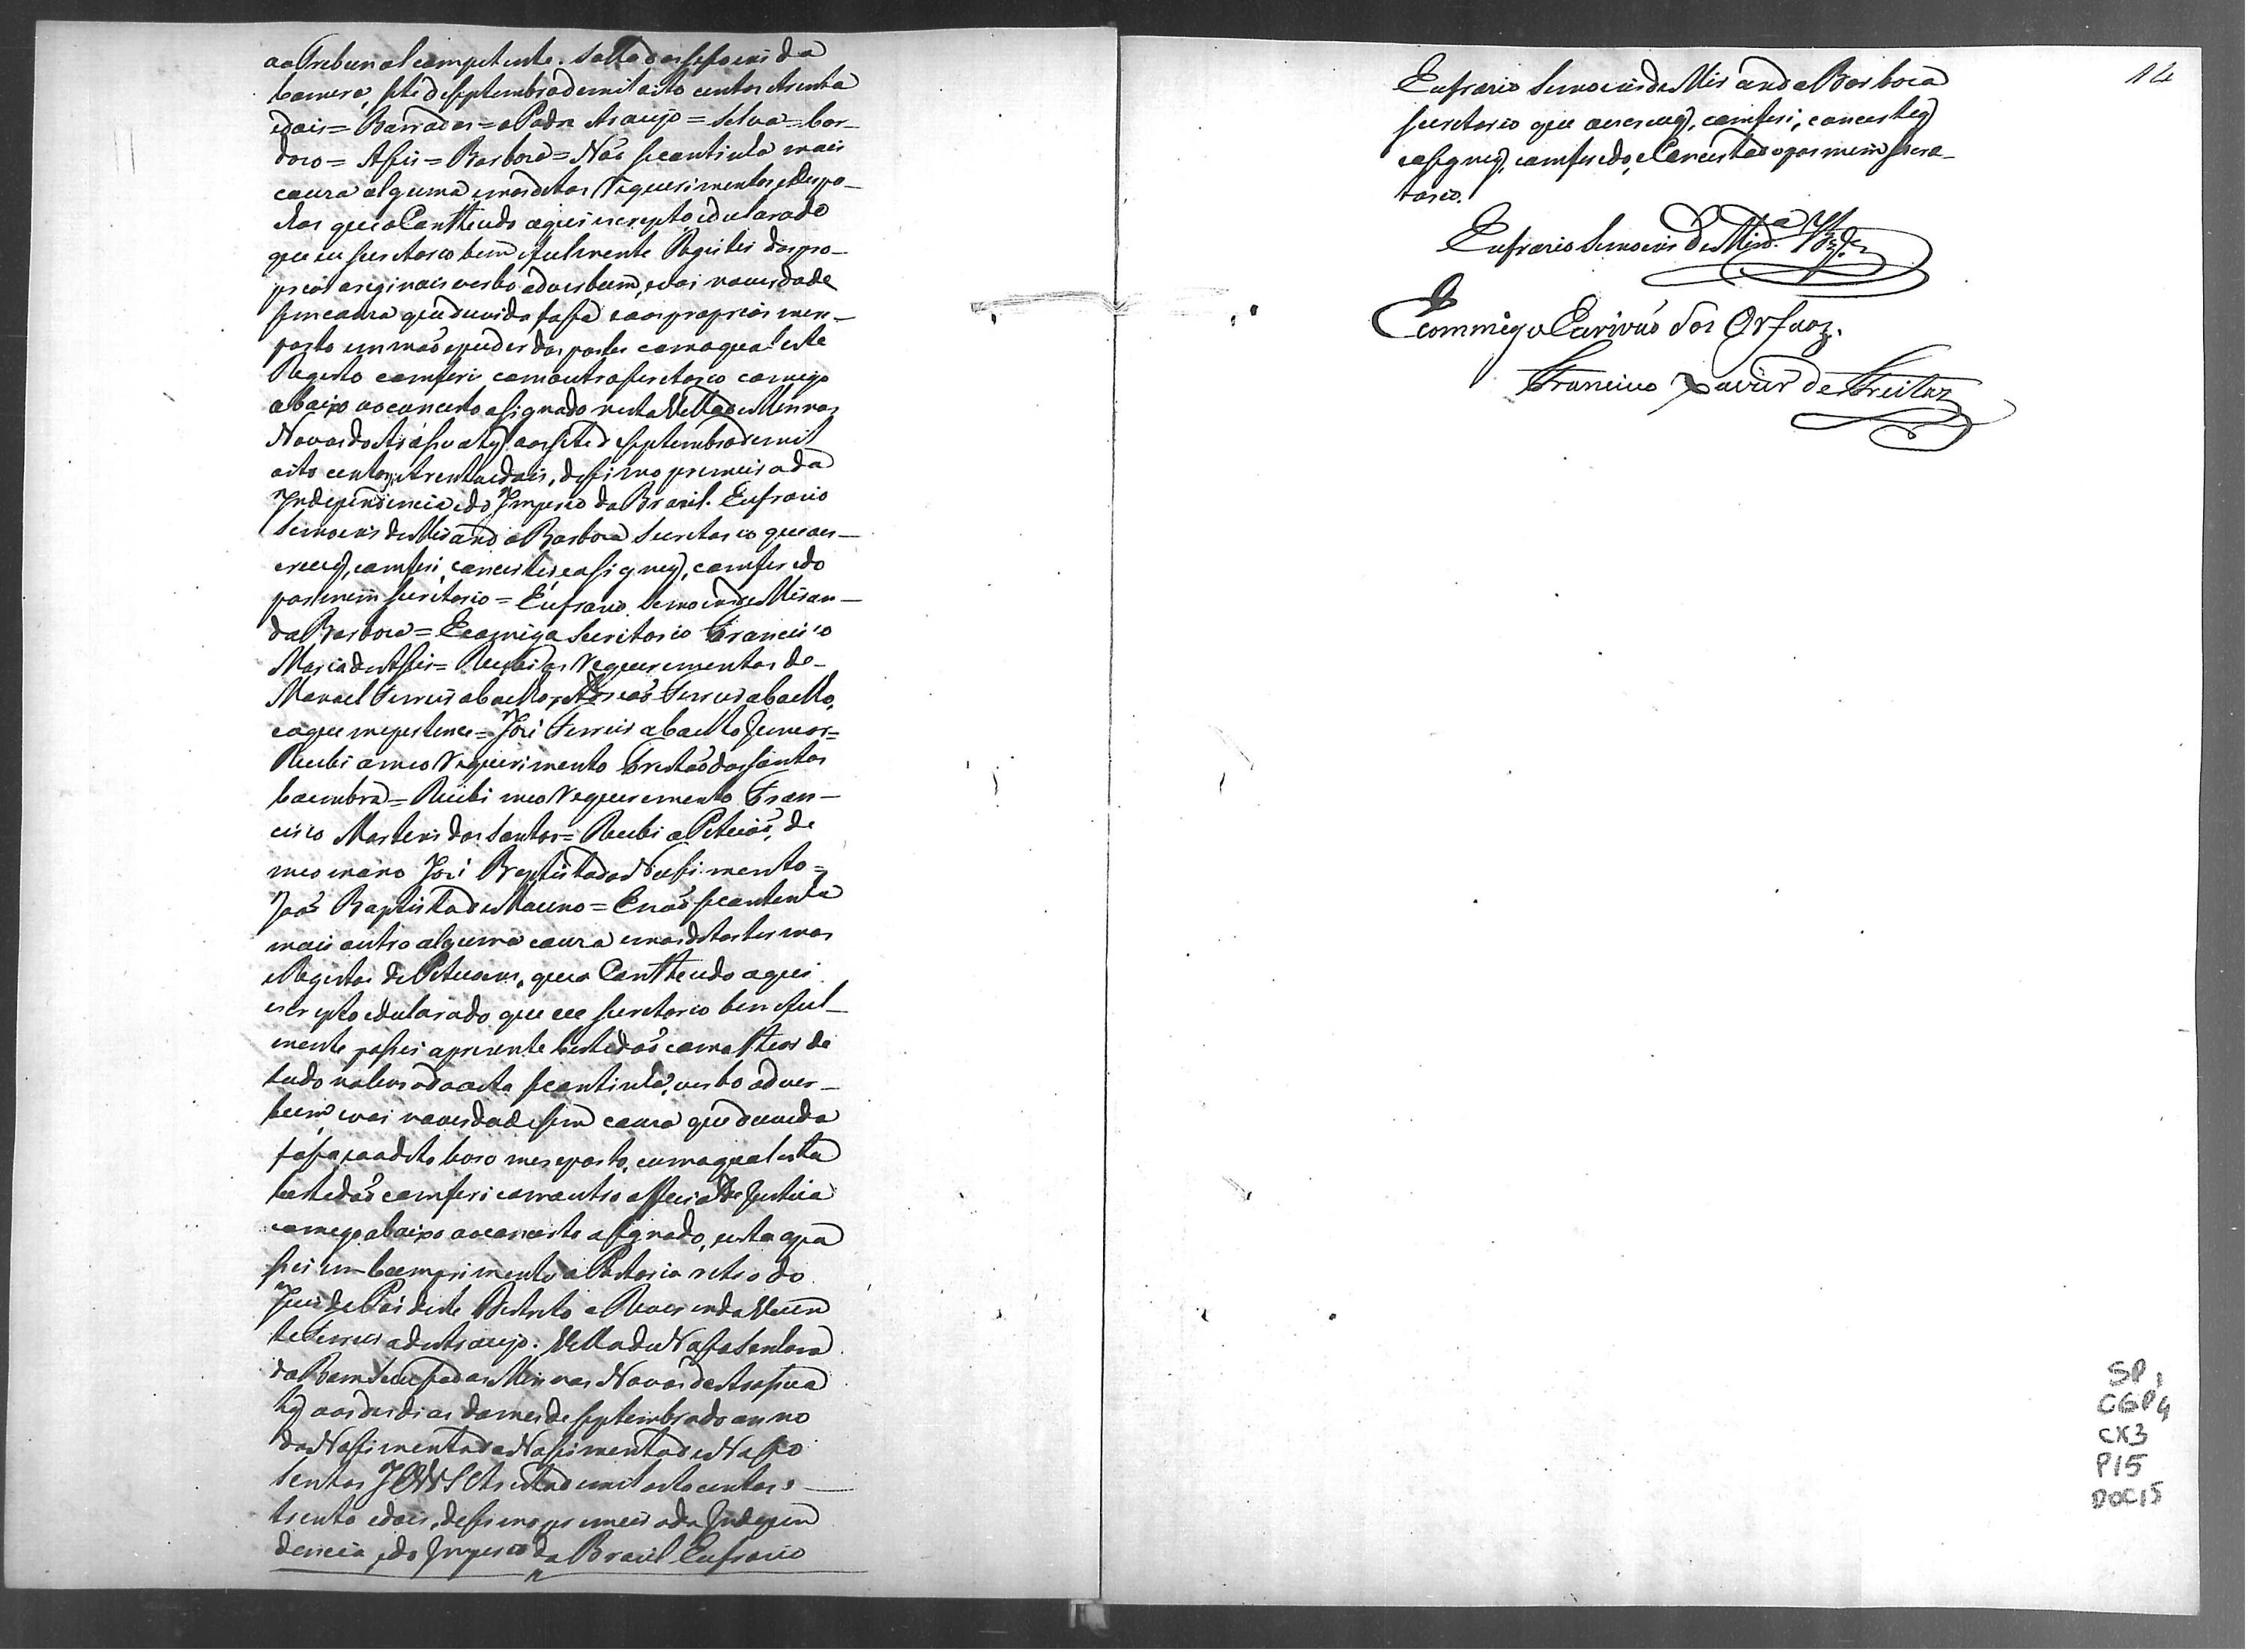 ao Trebunal competente. Salla das seçoens da
Camera, sete de Septembro de mil oito centos etrenta
edois = Barradas = o Padre Araujo = Silva = Cor-
doso = Assis = Barbosa = Não secontinha mais
couza alguma emos ditos Requerimentos, edespa-
xos queo Conttheudo aqui escrepto, edularado
que eu Secretario bem efielmente Registei dospro-
prios origináis verbo adverbum, evai naverdade
sem couza que duvida fassa eaosproprios mere-
porto em mão epuder das partes comoqual este
Registo comferi comoutro Secretario comigo
abaixo aoconcerto asignado nesta Villa de Minnas
Novas do Arassuahy aos sete de Septembro de mil
oito centos, etrentaedois, dessimo primeiro da
Independencia edo Imperio do Brazil. Eufrazio
Simoens de Miranda Barboza Secretario queoes-
crevy, comferi, concertei, easigney, comferido
por mim Secretario = Eufrazio Simoens de Miran-
da Barboza = Ecomigo Secretario Francisco
Maria de Assis = Recebi os Requerimentos de
Manoel Ferreira baello, Adrião Ferreira baello,
eoque mepertence = José Ferreira baello Junior =
Recebi omeo Requerimento Tristão dos Santos
Coimbra = Recibi meo Requeremento Fran-
cisco Martins dos Santos = Recebi aPetição de
meo mano José Baptista do Nassimento =
João Baptista de Macuno = Enão secontinha
mais outro alguma couza emos ditos termos
eRegistos de Peticoens, queo Conttheudo aqui
escrepto edularado que eu Secretario bem efiel-
mente passei aprezente Certidão como ttheor de
tudo nolivro doacta secontinha, verbo adver-
bum, evai naverdade sem couza que duvida
fassa, eaodito livro mereporto, comoqual esta
Certidão comferi comoutro official de Justiça
comego abaixo aoconcerto asignado, esta apa
ssei em Cumprimento a Portaria retro do
Juis de Pás deste Distrito o Reverendo Vicen
te Ferreira de Araujo. Villa de Nossa Senhora
do Bom Sucesso das Minnas Novas de Arassua
hy aos des dias domes de Septembro do anno
do Nassimento do Nassimento de Nosso
Senhor JEZUS Christo de mil oito centos e
trenta edois, dessimo primeiro da Indepen
dencia, edo Imperio do Brazil Eufrazio
Eufrazio Simoens de Miranda Barboza
Secretario que oescrevy, comferi, concertey
easigney, comferido, eConcertado por mim Secre-
tario.
Eufrazio Simoens de Mir.da Brz.a
E commigo Escrivaõ dos Orfaoz.
Francisco Xavier de Freitaz
14
SP 1
CGP 4
CX3
P15
DOC15